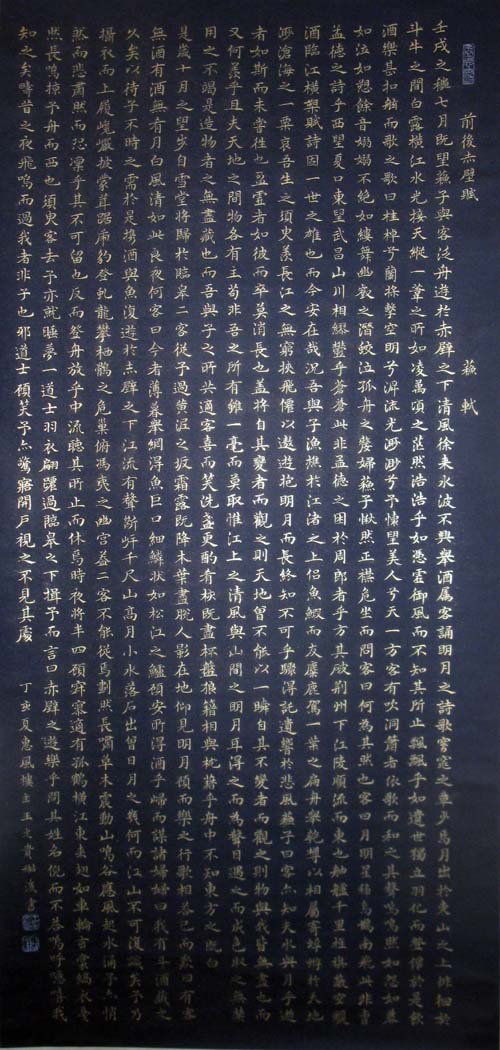 前後赤壁賦 蘇軾
壬戌之秋七月既望蘇子與客泛舟遊於赤壁之下清風徐來水波不興舉酒屬客誦明月之詩歌窈窕之章少焉月出於東山之上徘徊於
斗牛之間白露橫江水光接天縱一葦之所如凌萬頃之茫然浩浩乎如憑虛御風而不知其所止飄飄乎如遺世獨立羽化而登僊於是飲
酒樂甚扣舷而歌之歌曰桂棹兮蘭槳擊空明兮泝流光渺渺兮予懷望美人兮天一方客有吹洞蕭者依歌而和之其聲嗚嗚然如怨如慕
如泣如愬餘音嫋嫋不絕如縷舞幽壑之潛蛟泣孤舟之嫠婦蘇子愀然正襟危坐而問客曰何為其然也客曰月明星稀烏鵲南飛此非曹
孟德之詩乎西望夏口東望武昌山川相繆鬱乎蒼蒼此非孟德之困於周郎者乎方其破荊州下江陵順流而東也舳艫千里旌旗蔽空釃
酒臨江橫槊賦詩固一世之雄也而今安在哉況吾與子漁樵於江渚之上侶魚蝦而友麋鹿駕一葉之扁舟舉匏樽以相屬寄蜉蝣於天地
渺滄海之一粟哀吾生之須臾羨長江之無窮挾飛僊以遨遊抱明月而長終知不可乎驟得託遺響於悲風蘇子曰客亦知夫水與月乎逝
者如斯而未嘗往也盈虛者如彼而卒莫消長也蓋將自其變者而觀之則天地曾不能以一瞬自其不變者而觀之則物與我皆無盡也而
又何羨乎且夫天地之間物各有主苟非吾之所有雖一毫而莫取惟江上之清風與山間之明月耳得之而為聲目遇之而成色取之無禁
用之不竭是造物者之無盡藏也而吾與子之所共適客喜而笑洗盞更酌肴核既盡杯盤狼籍相與枕藉乎舟中不知東方之既白
是歲十月之望步自雪堂將歸於臨皋二客從予過黃泥之坂霜露既降木葉盡脫人影在地仰見明月顧而樂之行歌相荅已而歎曰有客
無酒有酒無肴月白風清如此良夜何客曰今者薄暮舉網得魚巨口細鱗狀如松江之鱸顧安所得酒乎歸而謀諸婦婦曰我有斗酒藏之
久矣以待子不時之需於是攜酒與魚復遊於赤壁之下江流有聲斷岸千尺山高月小水落石出曾日月之幾何而江山不可復識矣予乃
攝衣而上履巉巖披蒙茸踞虎豹登虬龍攀栖鶻之危巢俯馮夷之幽宮蓋二客不能從焉劃然長嘯草木震動山鳴谷應風起水涌予亦悄
然而悲肅然而恐凜乎其不可留也反而登舟放乎中流聽其所止而休焉時夜將半四顧寂寥適有孤鶴橫江東來翅如車輪玄裳縞衣戛
然長鳴掠予舟而西也須臾客去予亦就睡夢一道士羽衣翩躚過臨皋之下揖予而言曰赤壁之遊樂乎問其姓名俛而不答嗚呼噫嘻我
知之矣疇昔之夜飛鳴而過我者非子也邪道士顧笑予亦驚寤開戶視之不見其處 丁亥夏惠風樓主王文貴 書